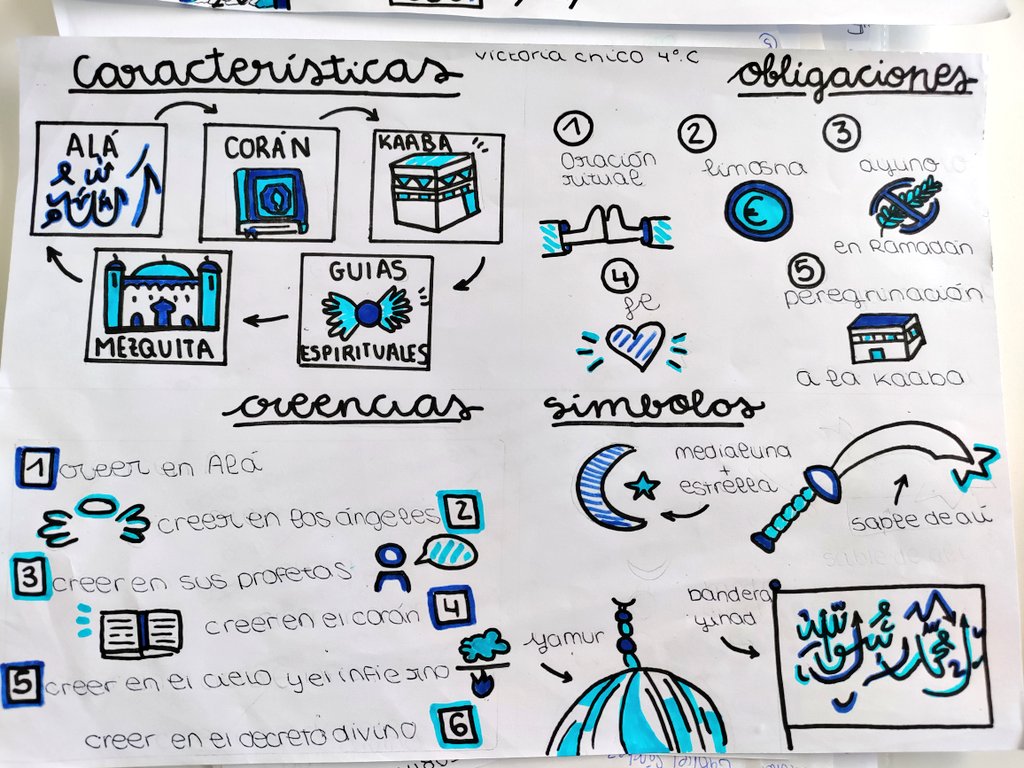 características
victoria chico 4º.C
obligaciones
ALÁ
CORÁN
KAABA
MEZQUITA
GUIAS
ESPIRITUALES
1
oración
ritual
2
limosna
€
3
ayuno
en Ramadán
4
fe
5
peregrinación
a la kaaba
creencias
1 creer en Alá
creer en los ángeles 2
3 creer en sus profetas
creer en el corán 4
5 creer en el cielo y el infierno
creer en el decreto divino 6
símbolos
medialuna
+
estrella
sable de alí
yamur
bandera
yihad